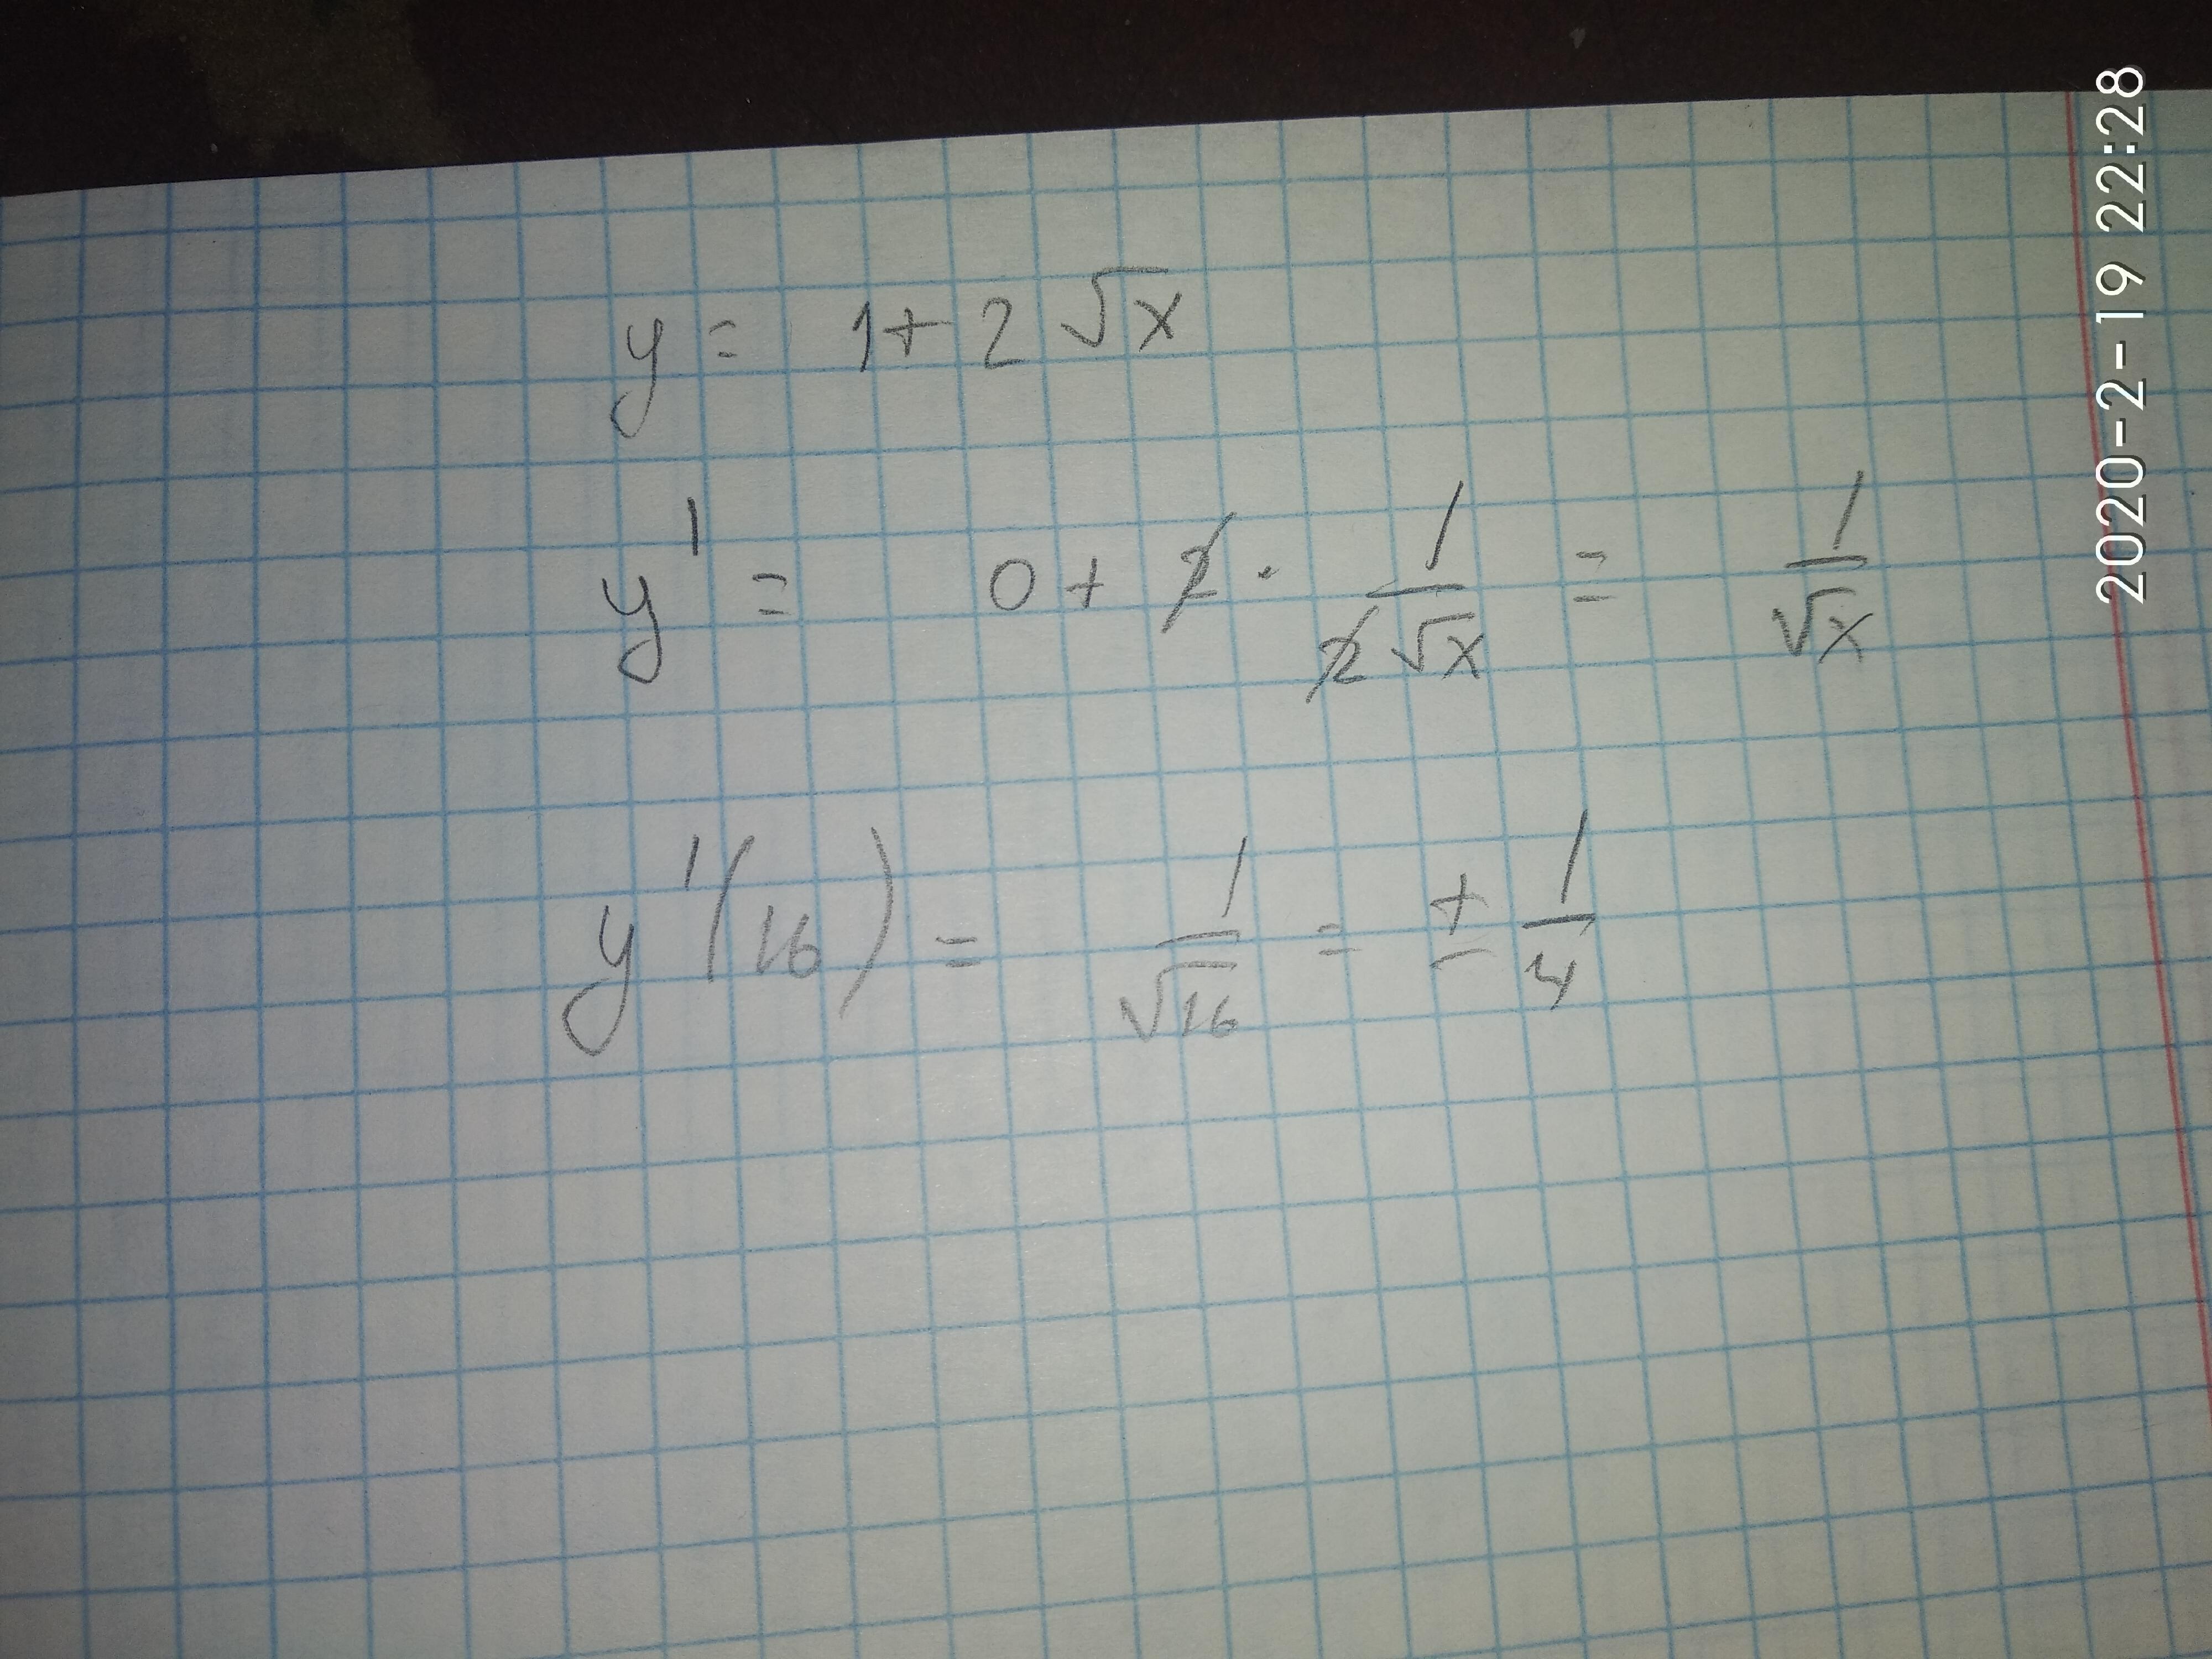 y = 1 + 2 √x
y' = 0 + 2 · 1/(2√x) = 1/√x
y'(16) = 1/√16 = ± 1/4
2020-2-19 22:28